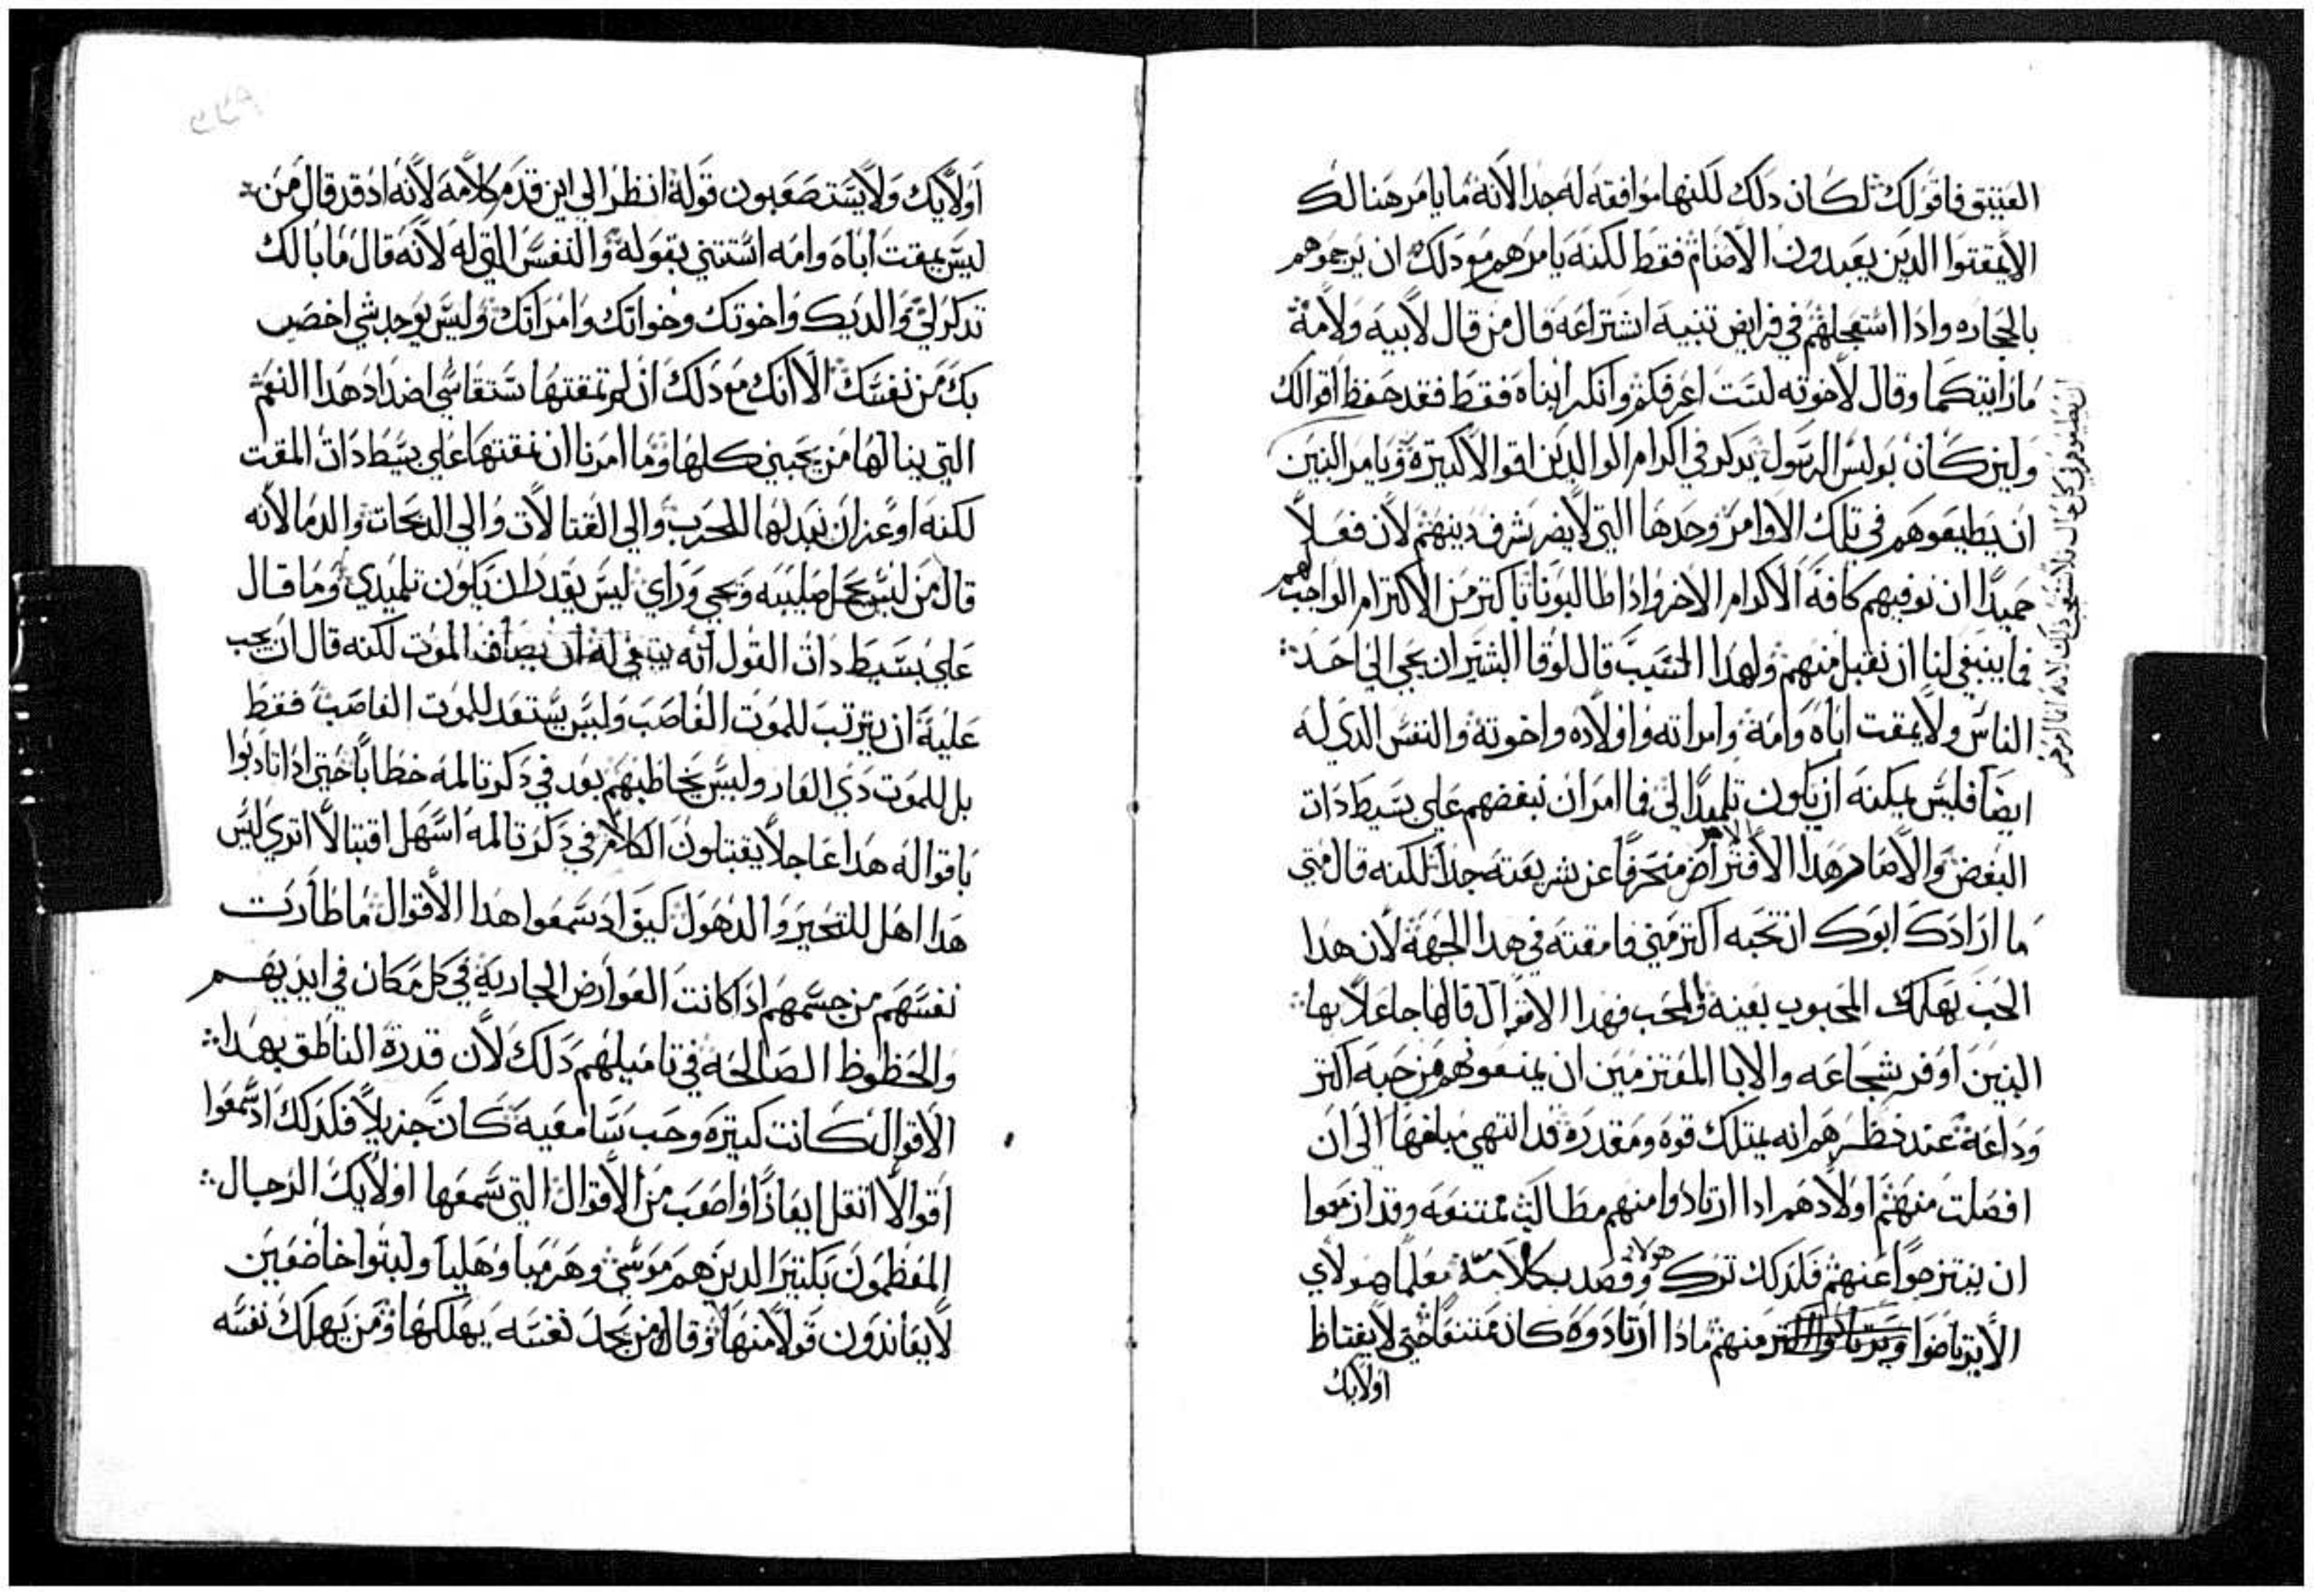 العتيق فاقولك لكان دلك لكنها موافقه له جدا لانه ما يامر هنالك
الا يمقتوا الدين يعبدون الاصنام فقط لكنه يامرهم مع دلك ان يرجموهم
بالحجاره وادا استعجلهم في فرايض تنبيه اشتراعه قال من قال لابيه ولامه
ما رايتكما وقال لاخوته لست اعرفكم وانكر ابناه فقط فقد حفظ اقوالك
ولين كان بولس الرسول يدكر في اكرام الوالدين اقوالا كتيرة ويامر البنين
ان يطيعوهم في كل حال فلا تستعجب دلك لانه انما امرهم
ان يطيعوهم في تلك الاوامر وحدها التي لا يضر شرف دينهم لان فعلا
حميدا ان نوفيهم كافة الاكرام الاخر وادا طالبونا باكتر من الاكرام الواجب لهم
فما ينبغي لنا ان نقبل منهم ولهدا السبب قال لوقا البشير ان يجي الي احد
الناس ولا يمقت اباه وامه وامراته واولاده واخوته والنفس الدي له
ايضا فليس يمكنه ان يكون تلميدا لي فما امر ان نبغضهم علي بسيط دات
البغض والا صار هدا الامر الافتراض منحرفا عن شريعته جدا لكنه قال متي
ما ارادك ابوك ان تحبه اكتر مني فامقته في هدا الجهة لان هدا
الحب يهلك المحبوب بعينه والمحب فهدا الاقوال قالها جاعلا بها
البنين اوفر شجاعه والابا المعتزمين ان يمنعوهم من حبه اكتر
وداعة عند نظرهم انه يمتلك قوه ومقدرة قد انتهي مبلغها الى ان
افصلت منهم اولادهم ادا ارتادوا منهم مطالب ممتنعه وقد ازمعوا
ان ينتزحوا عنهم فلدلك ترك هولاي وقصد بكلامه معلما هولاي
الا يرتاضوا منهم مادا ارتادوه كان ممتنعا حتي لا يغتاظ
اولايك
اولايك ولا يستصعبون قوله انظر الي اين قدم كلامه لانه اد قد قال من
ليس يمقت اباه وامه استتني بقوله والنفس التي له لانه قال ما بالك
تدكر لي والديك واخوتك وخواتك وامراتك وليس يوجد شي اخص
بك من نفسك الا انك مع دلك ان لم تمقتها ستقاسي اضداد هدا النعم
التي ينالها من يحبني كلها وما امرنا ان نمقتها علي بسيط دات المقت
لكنه اوعز ان نبدلها للحرب والي القتالات والي الدبحات والدما لانه
قال من ليس يحمل صليبه ويجي وراي ليس يقدر ان يكون تلميدي وما قال
علي بسيط دات القول انه ينبغي له ان يصاف الموت لكنه قال ان يجب
عليه ان يترتب للموت الغاصب وليس يستعد للموت الغاصب فقط
بل للموت دي العار وليس يخاطبهم بعد في دكر تالمه خطابا حتي ادا تادبوا
باقواله هدا عاجلا يقبلون الكلام في دكر تالمه اسهل اقتبالا اتري ليس
هدا اهل للتحير والدهول كيف اد سمعوا هدا الاقوال ما طارت
نفسهم من جسمهم ادا كانت العوارض الجارية في كل مكان في ايديهم
والحظوظ الصالحه في تاميلهم دلك لان قدرة الناطق بهدا
الاقوال كانت كبيرة وحب سامعيه كان جزيلا فكدلك اد سمعوا
اقوالا اتقل ايعازا واصعب من الاقوال التي سمعها اولايك الرجال
المعظمون بكتير الدين هم موسي وهرميا وهليا ولبتوا خاضعين
لا يعاندون قولا منها وقال من يجد نفسه يهلكها ومن يهلك نفسه